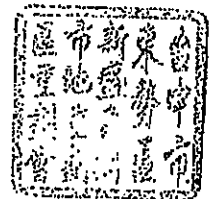 台中市
東勢區
新
市地重劃
區重劃會